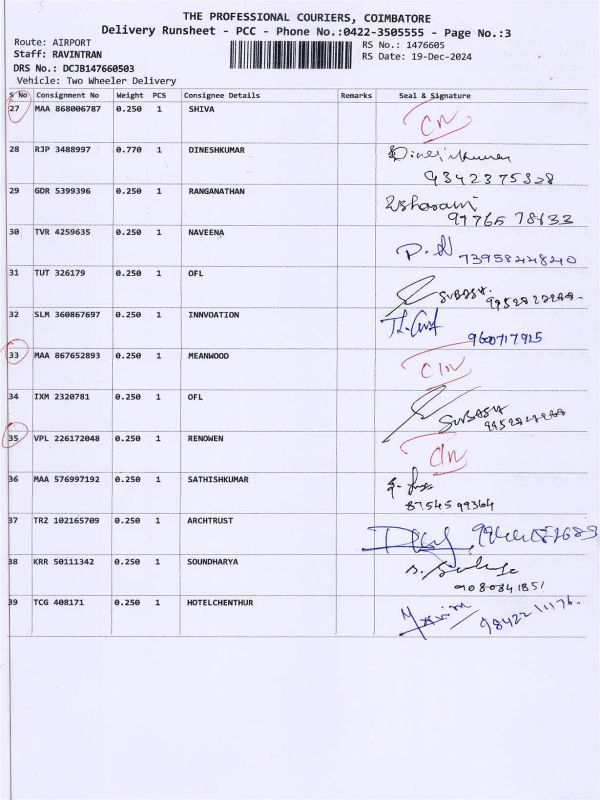 THE PROFESSIONAL COURIERS, COIMBATORE
Delivery Runsheet - PCC - Phone No.:0422-3505555 - Page No.:3
Route: AIRPORT RS No.: 1476605
Staff: RAVINTRAN RS Date: 19-Dec-2024
DRS No.: DCJB147660503
Vehicle: Two Wheeler Delivery
S No Consignment No Weight PCS Consignee Details Remarks Seal & Signature
27 MAA 868006787 0.250 1 SHIVA
28 RJP 3488997 0.770 1 DINESHKUMAR
9342375328
29 GDR 5399396 0.250 1 RANGANATHAN
30 TVR 4259635 0.250 1 NAVEENA
31 TUT 326179 0.250 1 OFL SUBASH
32 SLM 360867697 0.250 1 INNVOATION
9600717915
33 MAA 867652893 0.250 1 MEANWOOD
34 IXM 2320781 0.250 1 OFL SUBASH
35 VPL 226172048 0.250 1 RENOWEN
36 MAA 576997192 0.250 1 SATHISHKUMAR
8754599364
37 TRZ 102165709 0.250 1 ARCHTRUST
38 KRR 50111342 0.250 1 SOUNDHARYA
9080841851
39 TCG 408171 0.250 1 HOTELCHENTHUR